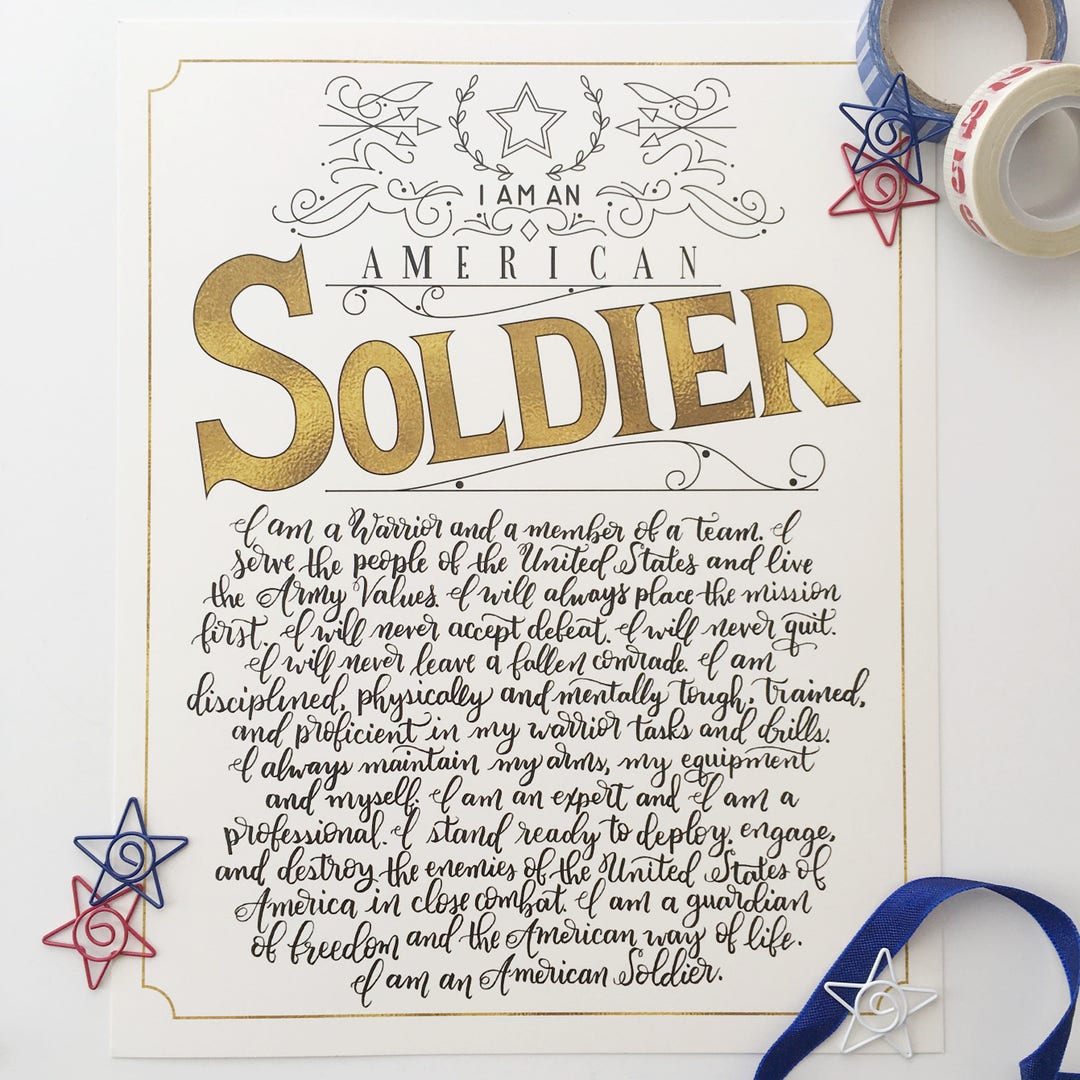 I AM AN
AMERICAN
SOLDIER
I am a Warrior and a member of a team. I
serve the people of the United States and live
the Army Values. I will always place the mission
first. I will never accept defeat. I will never quit.
I will never leave a fallen comrade. I am
disciplined, physically and mentally tough, trained,
and proficient in my warrior tasks and drills.
I always maintain my arms, my equipment
and myself. I am an expert and I am a
professional. I stand ready to deploy, engage,
and destroy the enemies of the United States of
America in close combat. I am a guardian
of freedom and the American way of life.
I am an American Soldier.
2
4
5
6